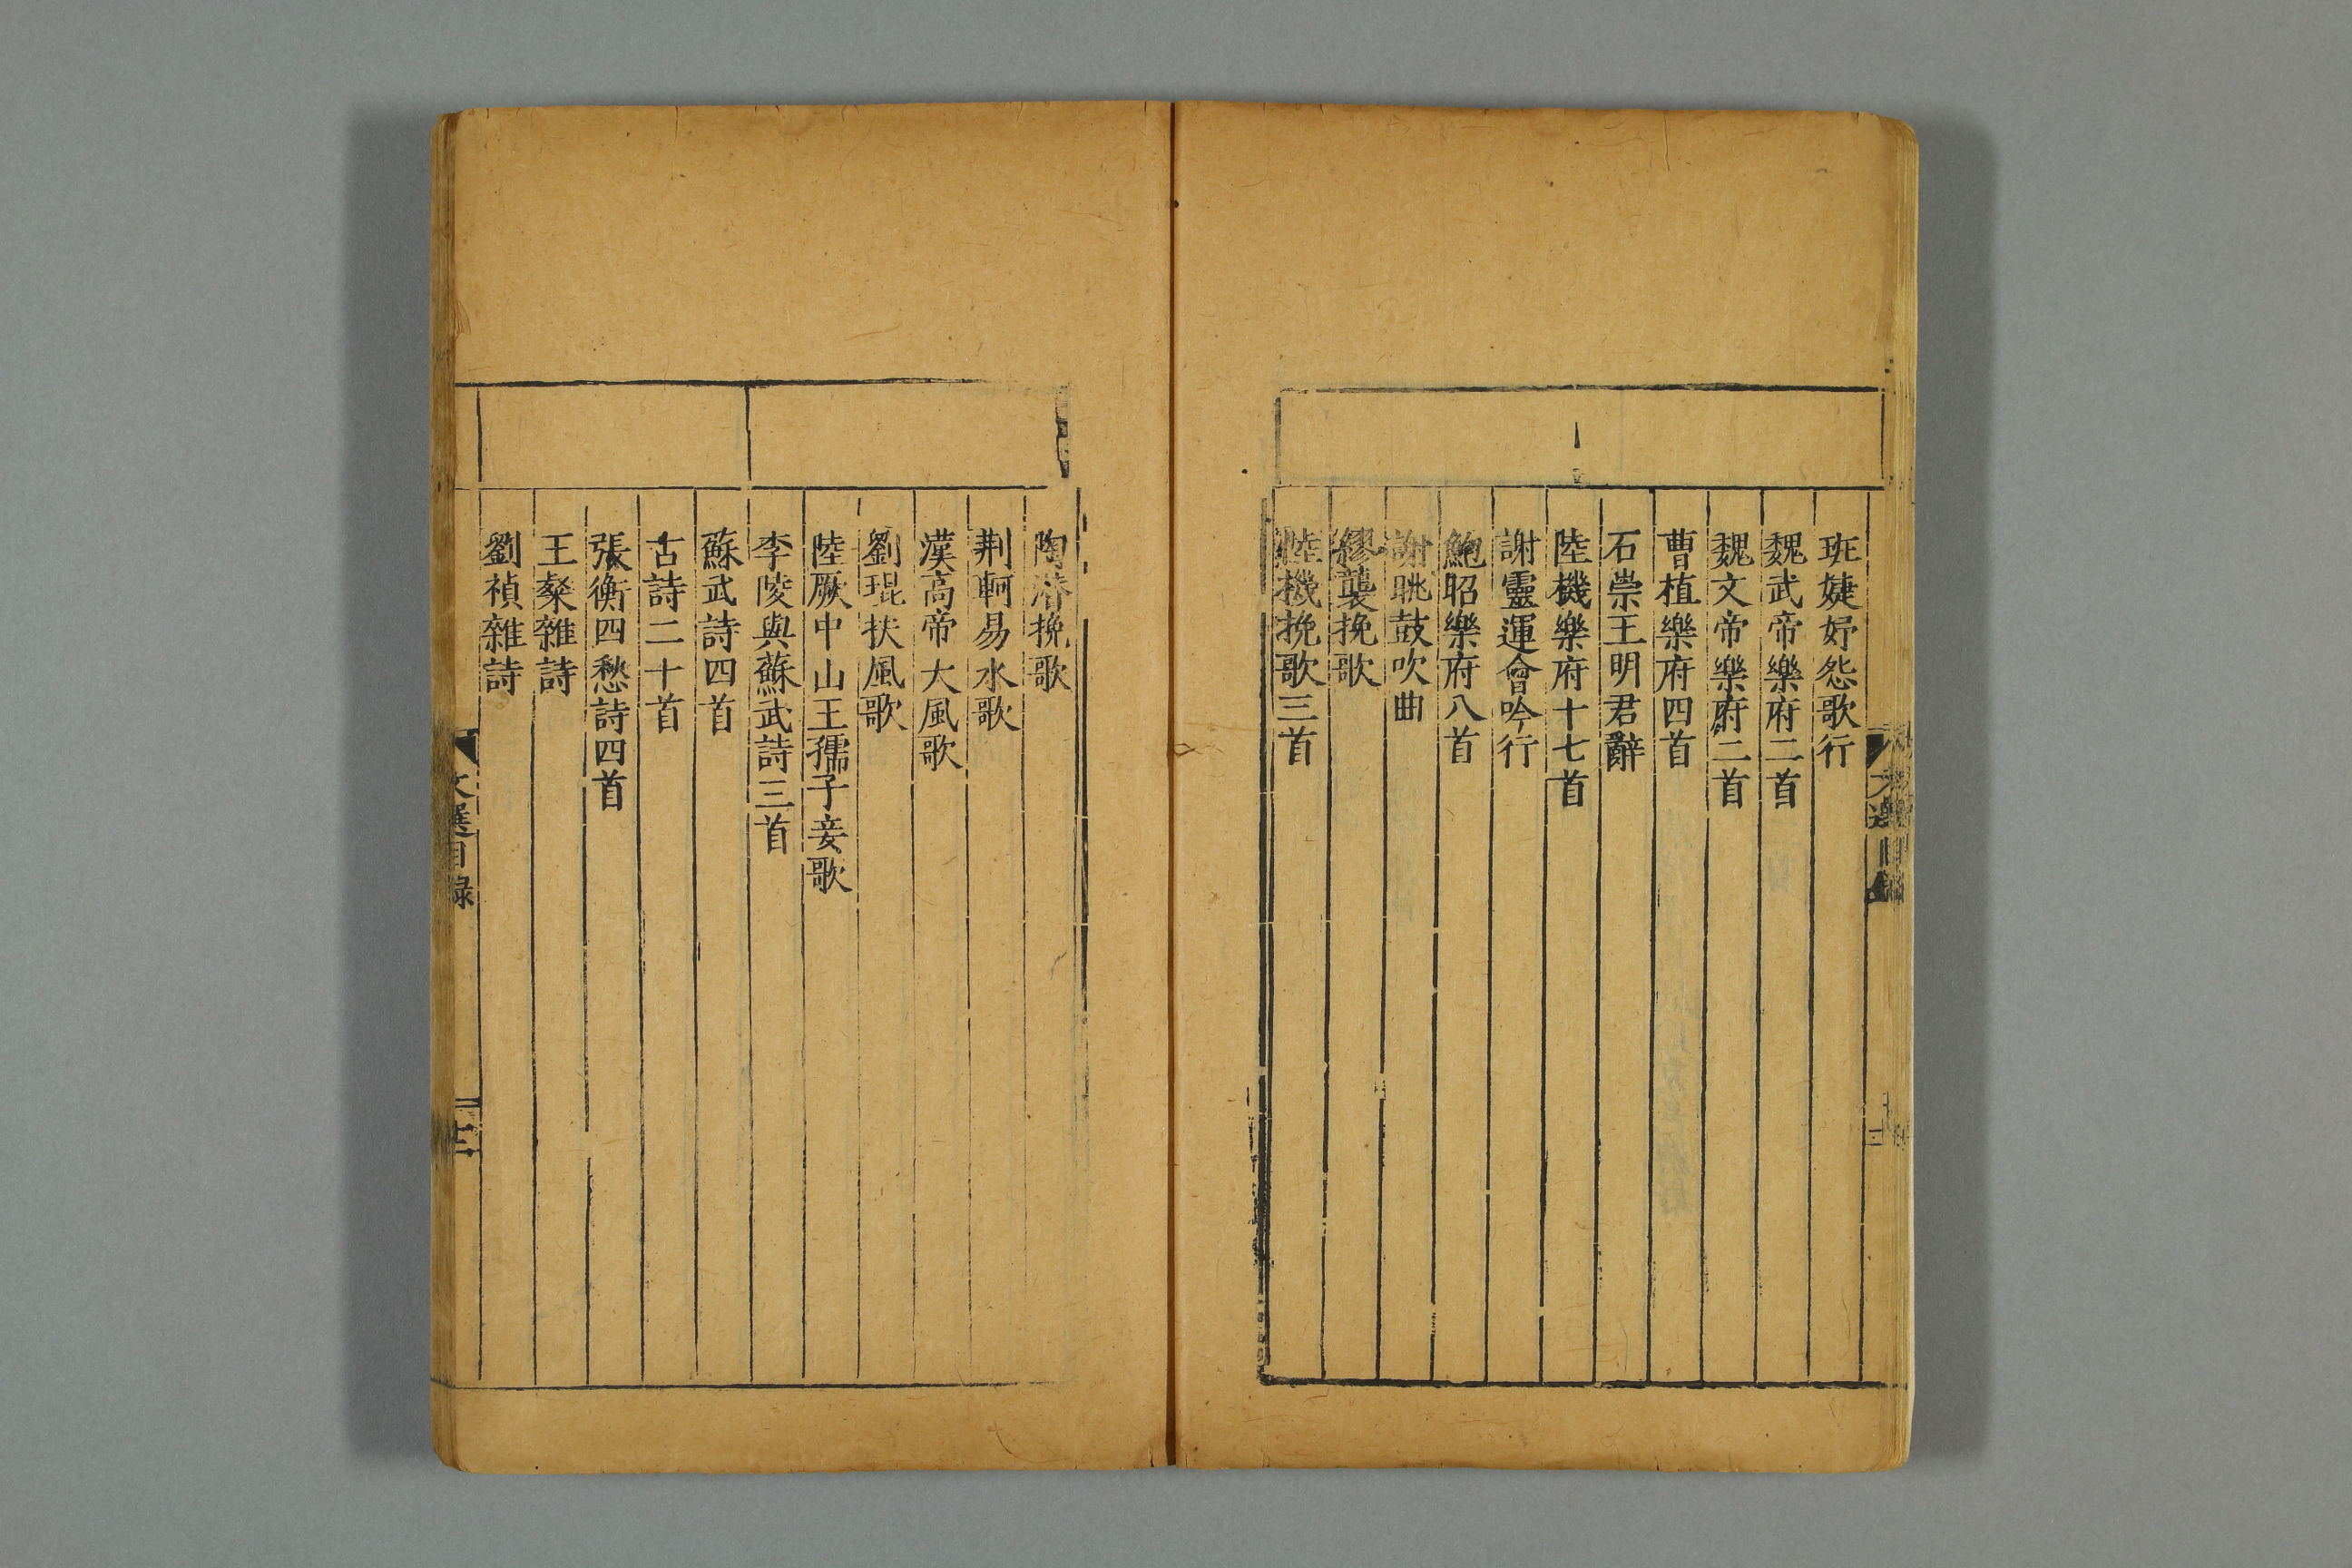 班婕妤怨歌行
魏武帝樂府二首
魏文帝樂府二首
曹植樂府四首
石崇王明君辭
陸機樂府十七首
謝靈運會吟行
鮑昭樂府八首
謝眺鼓吹曲
繆襲挽歌
陸機挽歌三首
陶潛挽歌
荆軻易水歌
漢高帝大風歌
劉琨扶風歌
陸厥中山王孺子妾歌
李陵與蘇武詩三首
蘇武詩四首
古詩二十首
張衡四愁詩四首
王粲雜詩
劉禎雜詩
文選目録